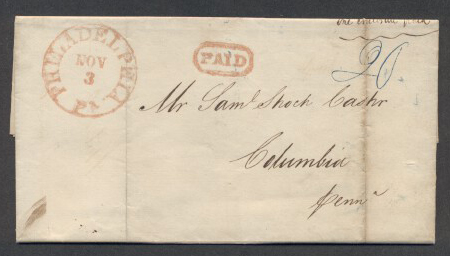 PHILADELPHIA
NOV
3
PA
PAID
one
20.
Mr Saml Shoch Cashr
Columbia
Penna